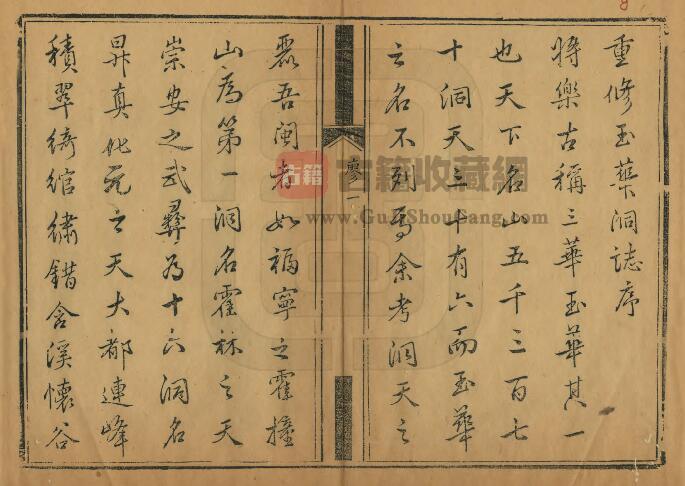 重修玉華洞誌序
將樂古稱三華玉華其一
也天下名山五千三百七
十洞天三十有六而玉華
之名不列焉余考洞天之
廖一
麗吾閩者如福寧之霍撞
山為第一洞名霍林之天
崇安之武彝為十六洞名
昇真化元之天大都連峰
積翠綺綰繡錯含溪懷谷
古籍
古籍收藏網
www.GuJiShouCang.com